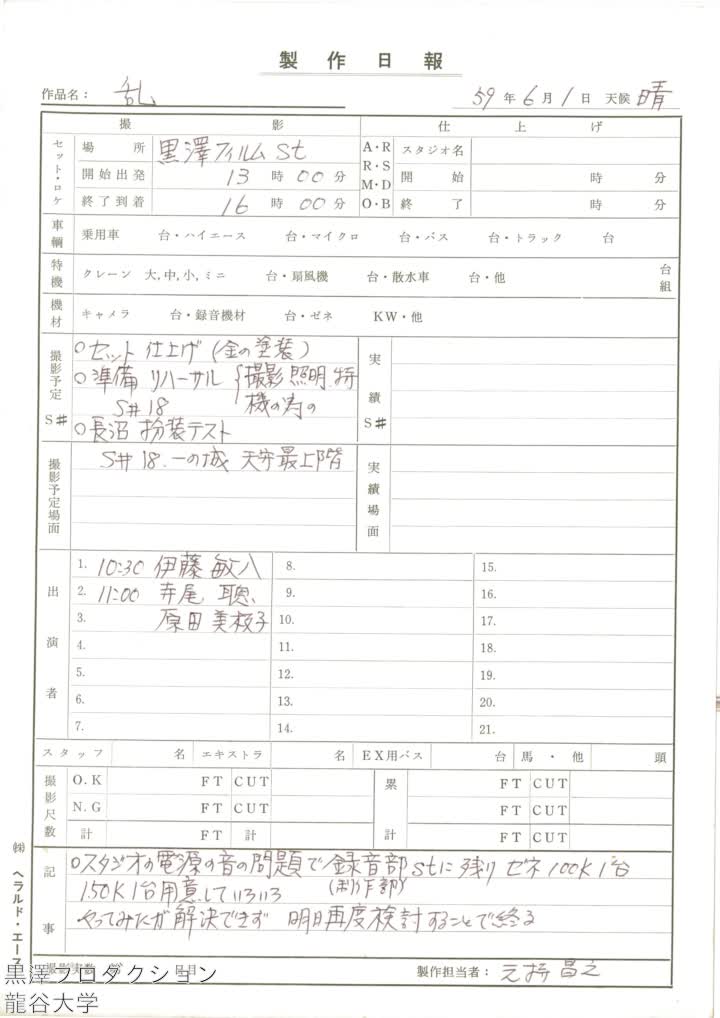 製作日報
作品名： 乱
59年6月1日 天候 晴
撮影 仕上げ
セット・ロケ 場所 黒澤フィルムSt A・R スタジオ名
開始出発 13時00分 R・S M・D 開始 時 分
終了到着 16時00分 O・B 終了 時 分
車輌 乗用車 台・ハイエース 台・マイクロ 台・バス 台・トラック 台
特機 クレーン 大,中,小,ミニ 台・扇風機 台・散水車 台・他 台組
機材 キャメラ 台・録音機材 台・ゼネ KW・他
撮影予定 S# 実績 S#
○セット仕上げ(金の塗装)
○準備 リハーサル {撮影 照明 特
S#18 機の為の
○長沼 扮装テスト
撮影予定場面 実績場面
S#18. 一の城 天守最上階
出演者
1. 10:30 伊藤敏八 8. 15.
2. 11:00 寺尾 聰 9. 16.
3. 原田美枝子 10. 17.
4. 11. 18.
5. 12. 19.
6. 13. 20.
7. 14. 21.
スタッフ 名 エキストラ 名 EX用バス 台 馬・他 頭
撮影尺数 O.K FT CUT 累計 FT CUT
N.G FT CUT FT CUT
計 FT 計 FT CUT
記事
○スタジオの電源の音の問題で録音部Stに残り ゼネ100K1台
(製作部)
150K1台用意していろいろ
やってみたが解決できず 明日再度検討することで終る
撮影実数 日目 製作担当者： 元持昌之
㈱ ヘラルド・エース
黒澤プロダクション
龍谷大学